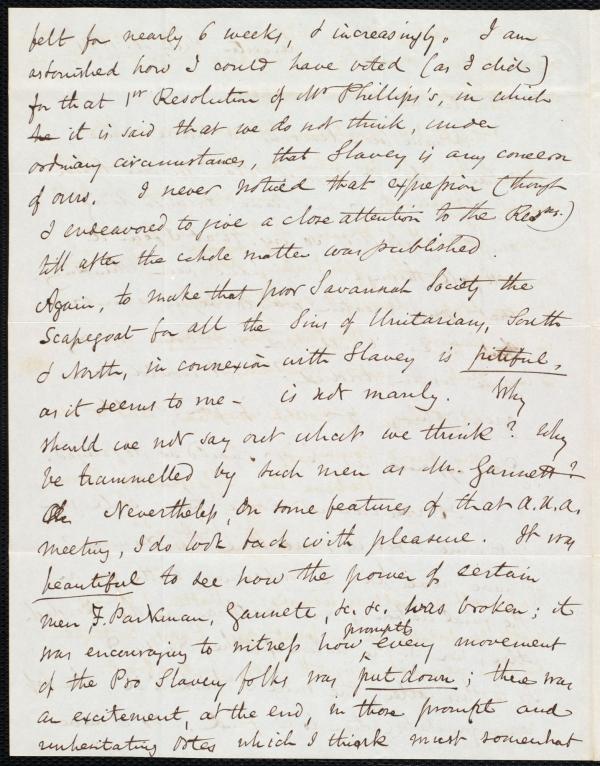 felt for nearly 6 weeks, & increasingly. I am
astonished how I could have voted (as I did)
for that 1st Resolution of Mr Phillips's, in which
it is said that we do not think, under
ordinary circumstances, that Slavery is any concern
of ours. I never noticed that expression (though
I endeavored to give a close attention to the Resns.)
till after the whole matter was published.
Again, to make that poor Savannah Society the
Scapegoat for all the Sins of Unitarians, South
& North, in connexion with Slavery is pitiful,
as it seems to me - is not manly. Why
should we not say out what we think? Why
be trammelled by such men as Mr. Gannett?
Nevertheless, on some features of that A.U.A.
meeting, I do look back with pleasure. It was
beautiful to see how the power of certain
men, F. Parkman, Gannett, &c. &c. was broken; it
was encouraging to witness how promptly every movement
of the Pro Slavery folks was put down; there was
an excitement, at the end, in those prompt and
unhesitating votes which I think must somewhat